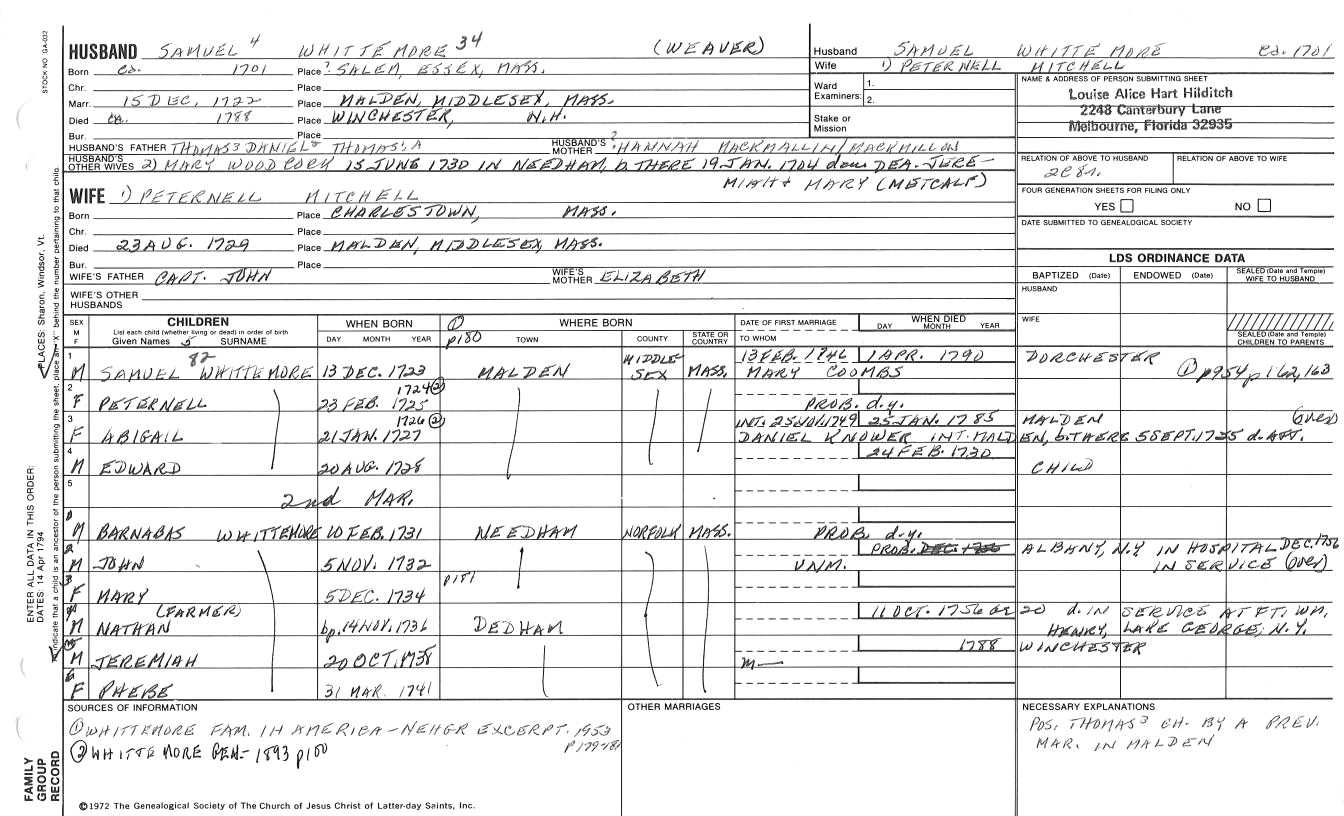 STOCK NO. GA-032
HUSBAND SAMUEL 4 WHITTEMORE 34 (WEAVER)
Born ca. 1701 Place ? SALEM, ESSEX, MASS.
Chr. Place
Marr. 15 DEC, 1722 Place MALDEN, MIDDLESEX, MASS.
Died ca. 1788 Place WINCHESTER, N.H.
Bur. Place
HUSBAND'S FATHER THOMAS 3 DANIEL 2 THOMAS 1 A HUSBAND'S MOTHER ? HANNAH MACKMALLIN/MACKMILLON
HUSBAND'S OTHER WIVES 2) MARY WOODCOCK 15 JUNE 1730 IN NEEDHAM, b. THERE 19 JAN. 1704 dau DEA. JERE-
MIAH & MARY (METCALF)
Husband SAMUEL WHITTEMORE ca. 1701
Wife 1) PETERNELL MITCHELL
Ward Examiners: 1.
2.
Stake or Mission
NAME & ADDRESS OF PERSON SUBMITTING SHEET
Louise Alice Hart Hilditch
2248 Canterbury Lane
Melbourne, Florida 32935
RELATION OF ABOVE TO HUSBAND RELATION OF ABOVE TO WIFE
FOUR GENERATION SHEETS FOR FILING ONLY
YES NO
DATE SUBMITTED TO GENEALOGICAL SOCIETY
WIFE 1) PETERNELL MITCHELL
Born Place CHARLESTOWN, MASS.
Chr. Place
Died 23 AUG. 1729 Place MALDEN, MIDDLESEX, MASS.
Bur. Place
WIFE'S FATHER CAPT. JOHN WIFE'S MOTHER ELIZABETH
WIFE'S OTHER HUSBANDS
LDS ORDINANCE DATA
BAPTIZED (Date) ENDOWED (Date) SEALED (Date and Temple) WIFE TO HUSBAND
HUSBAND
WIFE
SEALED (Date and Temple) CHILDREN TO PARENTS
SEX M F CHILDREN WHEN BORN 1 WHERE BORN DATE OF FIRST MARRIAGE WHEN DIED
List each child (whether living or dead) in order of birth
Given Names 5 SURNAME DAY MONTH YEAR p180 TOWN COUNTY STATE OR COUNTRY TO WHOM DAY MONTH YEAR
1 M SAMUEL 82 WHITTEMORE 13 DEC. 1723 MALDEN MIDDLE-SEX MASS. 13 FEB. 1746 MARY COOMBS 1 APR. 1790 DORCHESTER 1 p954 p162,163
2 F PETERNELL 23 FEB. 1725 1724 (2) PROB. d.y.
3 F ABIGAIL 21 JAN. 1727 1726 (2) INT. 25 NOV. 1749 25 JAN. 1785 MALDEN (over)
DANIEL KNOWER INT. MALDEN, b. THERE 5 SEPT. 1725 d. AFT.
4 M EDWARD 20 AUG. 1728 24 FEB. 1730 CHILD
5 2nd MAR.
1 M BARNABAS WHITTEMORE 10 FEB. 1731 NEEDHAM NORFOLK MASS. PROB. d.y.
2 M JOHN 5 NOV. 1732 UNM. PROB. DEC. 1756 ALBANY, N.Y IN HOSPITAL DEC. 1756
IN SERVICE (over)
3 F MARY 5 DEC. 1734 p181
4 M NATHAN (FARMER) bp. 14 NOV. 1736 DEDHAM 11 OCT. 1756 or 20 d. IN SERVICE AT FT. WM.
HENRY, LAKE GEORGE, N.Y.
5 M JEREMIAH 20 OCT. 1738 m— 1788 WINCHESTER
6 F PHEBE 31 MAR. 1741
SOURCES OF INFORMATION
1 WHITTEMORE FAM. IN AMERICA - NEHGR EXCERPT. 1953
p179-181
2 WHITTEMORE GEN- 1893 p100
OTHER MARRIAGES
NECESSARY EXPLANATIONS
POS. THOMAS 3 CH. BY A PREV.
MAR. IN MALDEN
©1972 The Genealogical Society of The Church of Jesus Christ of Latter-day Saints, Inc.
FAMILY GROUP RECORD
ENTER ALL DATA IN THIS ORDER:
DATES: 14 Apr 1794
PLACES: Sharon, Windsor, Vt.
To indicate that a child is an ancestor of the person submitting the sheet, place an "X" behind the number pertaining to that child.